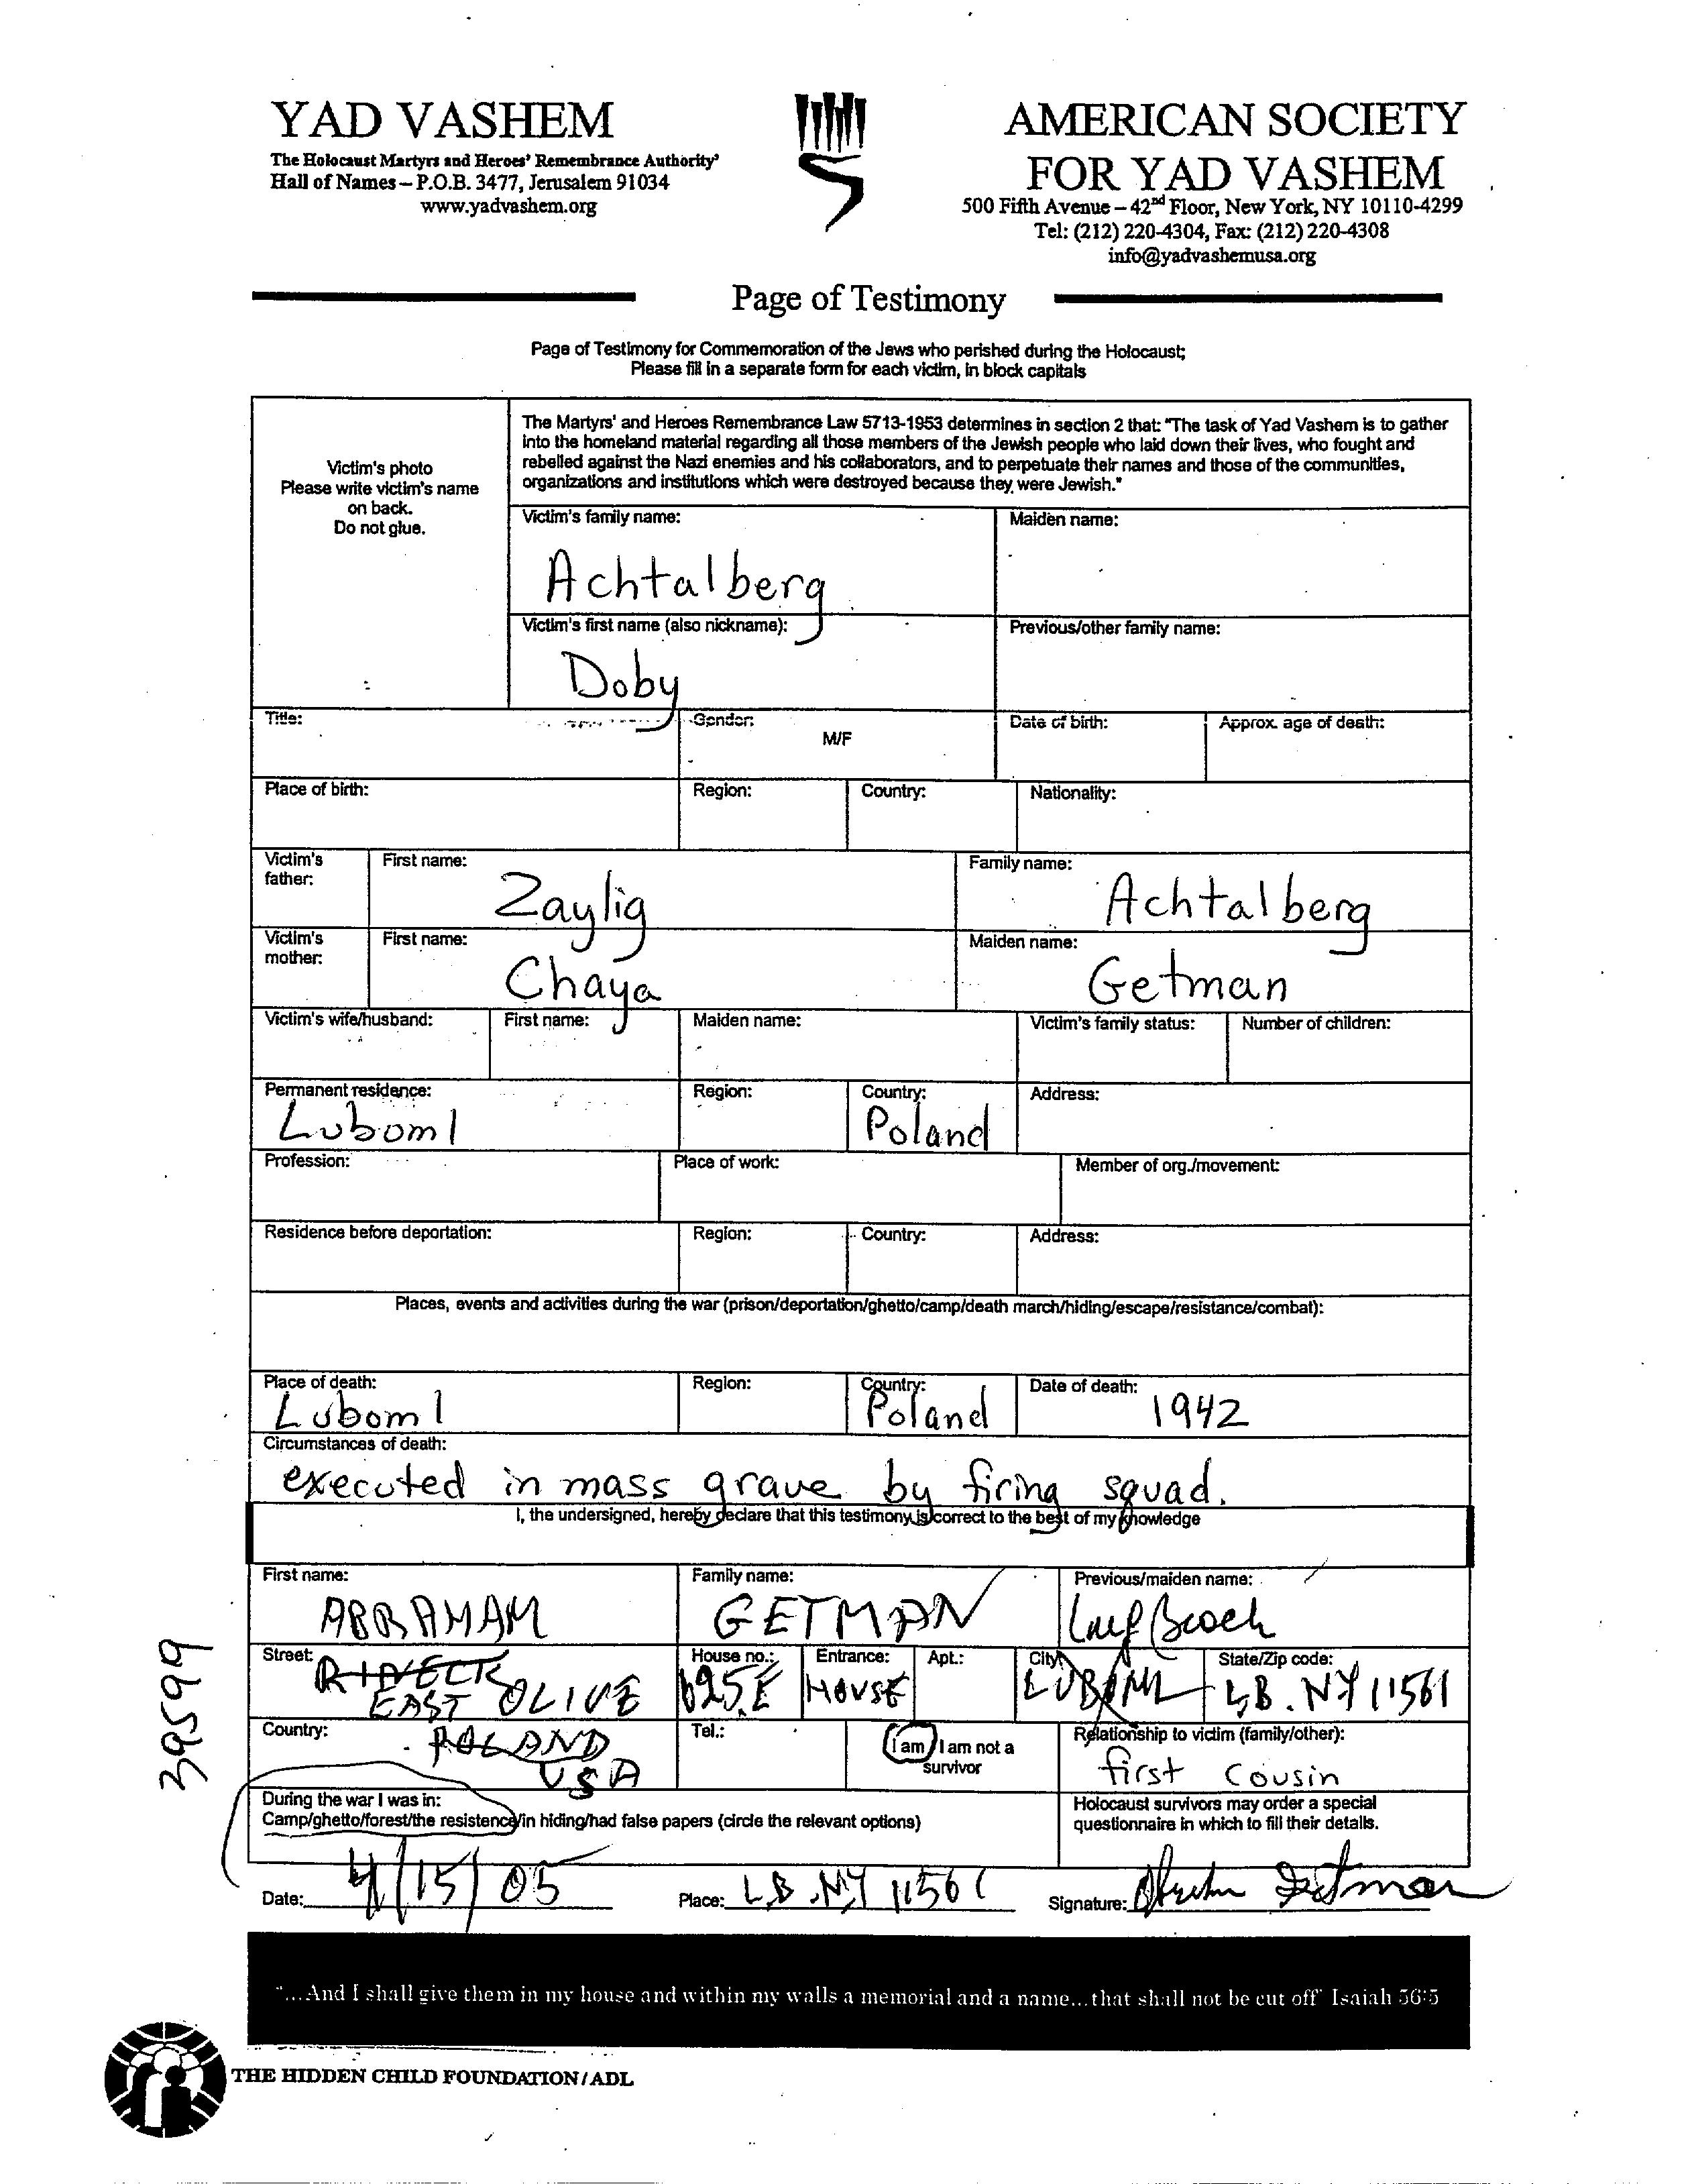 YAD VASHEM
The Holocaust Martyrs and Heroes' Remembrance Authority'
Hall of Names – P.O.B. 3477, Jerusalem 91034
www.yadvashem.org
AMERICAN SOCIETY
FOR YAD VASHEM
500 Fifth Avenue – 42nd Floor, New York, NY 10110-4299
Tel: (212) 220-4304, Fax: (212) 220-4308
info@yadvashemusa.org
Page of Testimony
Page of Testimony for Commemoration of the Jews who perished during the Holocaust;
Please fill in a separate form for each victim, in block capitals
Victim's photo
Please write victim's name
on back.
Do not glue.
The Martyrs' and Heroes Remembrance Law 5713-1953 determines in section 2 that: "The task of Yad Vashem is to gather
into the homeland material regarding all those members of the Jewish people who laid down their lives, who fought and
rebelled against the Nazi enemies and his collaborators, and to perpetuate their names and those of the communities,
organizations and institutions which were destroyed because they were Jewish."
Victim's family name: Maiden name:
Achtalberg
Victim's first name (also nickname): Previous/other family name:
Doby
Title: Gender: Date of birth: Approx. age of death:
M/F
Place of birth: Region: Country: Nationality:
Victim's father: First name: Family name:
Zaylig Achtalberg
Victim's mother: First name: Maiden name:
Chaya Getman
Victim's wife/husband: First name: Maiden name: Victim's family status: Number of children:
Permanent residence: Region: Country: Address:
Luboml Poland
Profession: Place of work: Member of org./movement:
Residence before deportation: Region: Country: Address:
Places, events and activities during the war (prison/deportation/ghetto/camp/death march/hiding/escape/resistance/combat):
Place of death: Region: Country: Date of death:
Luboml Poland 1942
Circumstances of death:
executed in mass grave by firing squad.
I, the undersigned, hereby declare that this testimony is correct to the best of my knowledge
First name: Family name: Previous/maiden name:
ABRAHAM GETMAN
Street: House no.: Entrance: Apt.: City: State/Zip code:
EAST OLIVE 625E HOUSE LUBOML L.B. NY 11561
Country: Tel.: I am / I am not a survivor Relationship to victim (family/other):
POLAND
USA first cousin
During the war I was in:
Camp/ghetto/forest/the resistence/in hiding/had false papers (circle the relevant options)
Holocaust survivors may order a special
questionnaire in which to fill their details.
Date: 4/15/05 Place: L.B. NY 11561 Signature: Getman
39599
"...And I shall give them in my house and within my walls a memorial and a name...that shall not be cut off" Isaiah 56:5
THE HIDDEN CHILD FOUNDATION/ADL